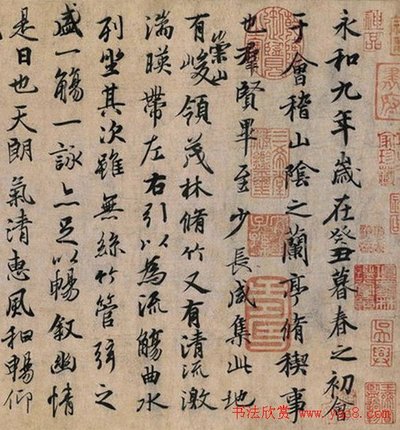 永和九年歲在癸丑暮春之初會
于會稽山陰之蘭亭脩稧事
也群賢畢至少長咸集此地
有崇山峻領茂林脩竹又有清流激
湍暎帶左右引以為流觴曲水
列坐其次雖無絲竹管弦之
盛一觴一詠亦足以暢敘幽情
是日也天朗氣清惠風和暢仰
书法欣赏 www.yac8.com